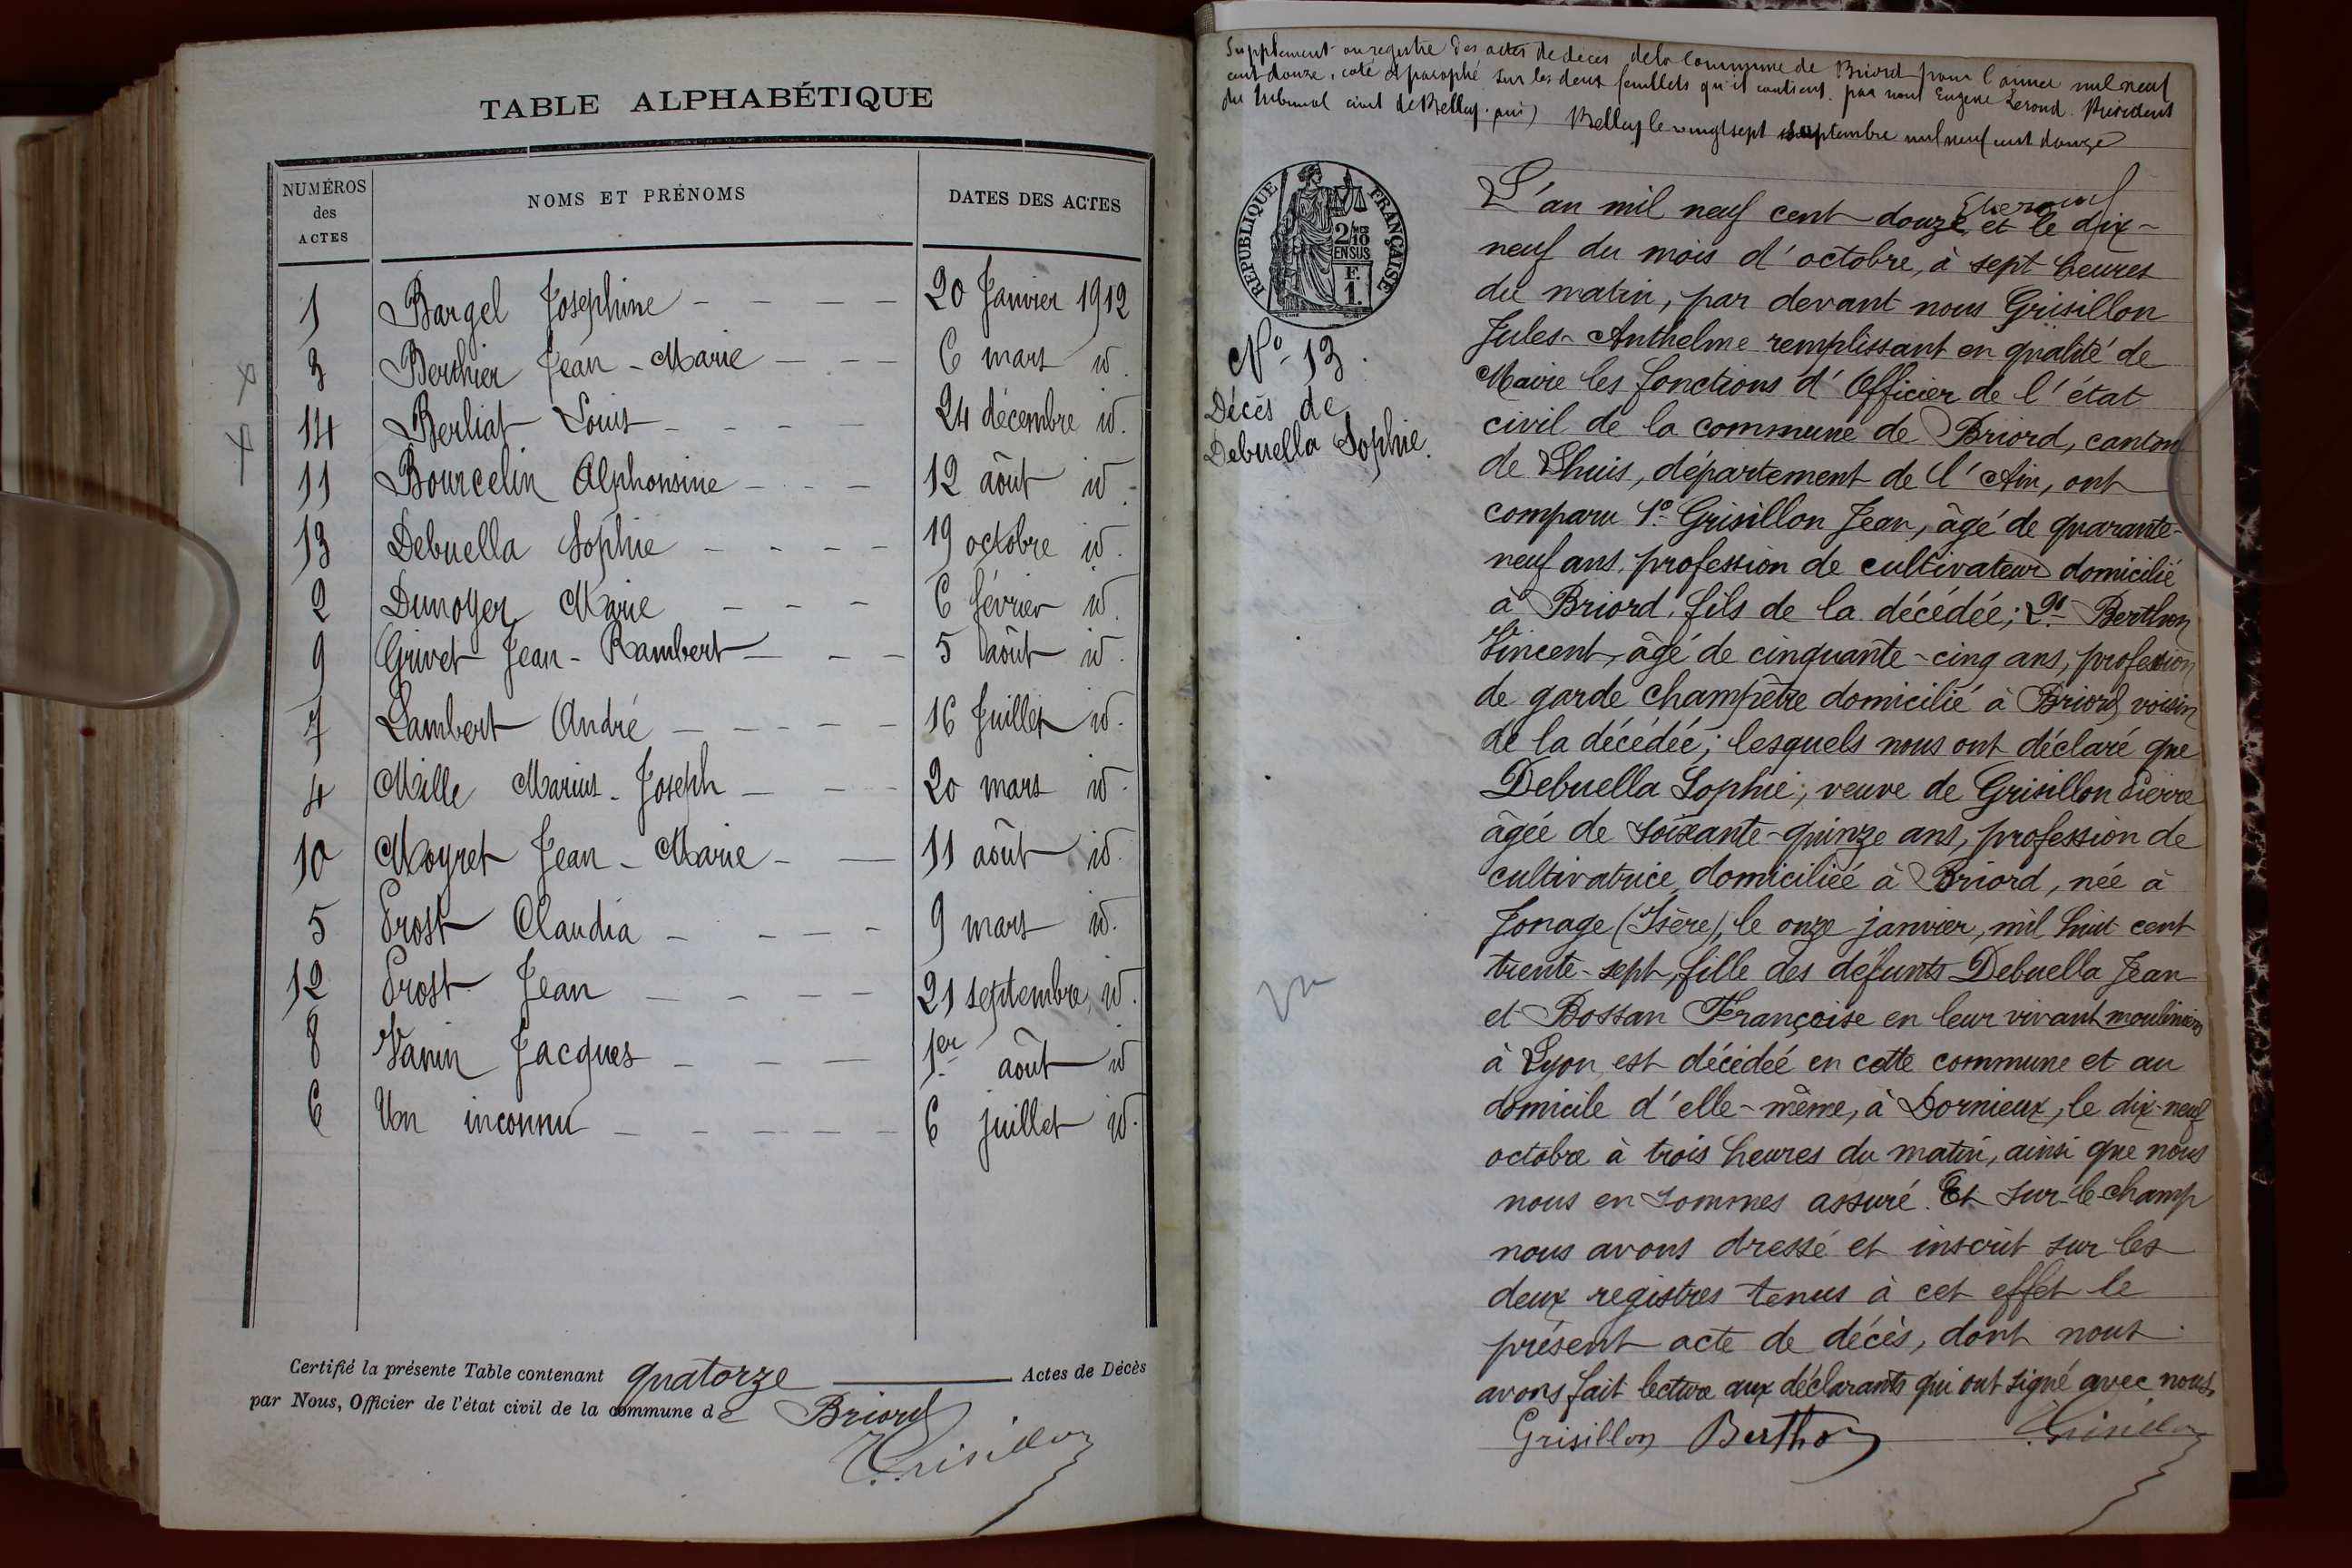 TABLE ALPHABÉTIQUE
NUMÉROS des ACTES NOMS ET PRÉNOMS DATES DES ACTES
1 Bargel Josephine 20 Janvier 1912
3 Berthier Jean-Marie 6 mars id.
14 Berliat Louis 24 décembre id.
11 Bourcelin Alphonsine 12 août id.
13 Debuella Sophie 19 octobre id.
2 Dunoyer Marie 6 février id.
9 Grivet Jean-Rambert 5 août id.
7 Lambert André 16 Juillet id.
4 Mille Marius-Joseph 20 mars id.
10 Moyret Jean-Marie 11 août id.
5 Prost Claudia 9 mars id.
12 Prost Jean 21 septembre id.
8 Vanin Jacques 1er août id
6 Un inconnu 6 juillet id.
Certifié la présente Table contenant quatorze Actes de Décès
par Nous, Officier de l'état civil de la commune de Briord
Grisillon
Supplement au registre des actes de décès de la Commune de Briord pour l'année mil neuf
cent douze, coté et paraphé sur les deux feuillets qu'il contient, par nous Eugène Lerond. Président
du Tribunal civil de Belley. Belley le vingt sept septembre mil neuf cent douze
RÉPUBLIQUE FRANÇAISE
2/10
EN SUS
F.
1.
No 13.
Décès de
Debuella Sophie.
L'an mil neuf cent douze, et le dix-
neuf du mois d'octobre, à sept heures
du matin, par devant nous Grisillon
Jules-Anthelme remplissant en qualité de
Maire les fonctions d'Officier de l'état
civil de la commune de Briord, canton
de Lhuis, département de l'Ain, ont
comparu 1o Grisillon Jean, âgé de quarante-
neuf ans, profession de cultivateur domicilié
à Briord, fils de la décédée; 2o Berthon
Vincent, âgé de cinquante-cinq ans, profession
de garde champêtre domicilié à Briord, voisin
de la décédée; lesquels nous ont déclaré que
Debuella Sophie, veuve de Grisillon Pierre
âgée de soixante-quinze ans, profession de
cultivatrice, domiciliée à Briord, née à
Jonage (Isère), le onze janvier, mil huit cent
trente-sept, fille des défunts Debuella Jean
et Bossan Françoise en leur vivant mouliniers
à Lyon, est décédée en cette commune et au
domicile d'elle-même, à Dornieux, le dix-neuf
octobre à trois heures du matin, ainsi que nous
nous en sommes assuré. Et sur-le-champ
nous avons dressé et inscrit sur les
deux registres tenus à cet effet le
présent acte de décès, dont nous
avons fait lecture aux déclarants qui ont signé avec nous.
Grisillon Berthon Grisillon